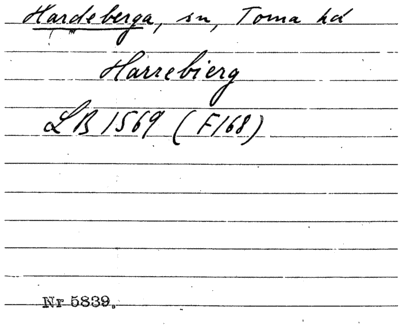 Hardeberga, sn, Torna hd
Harrebierg
LB 1569 (F168)
Nr 5839.